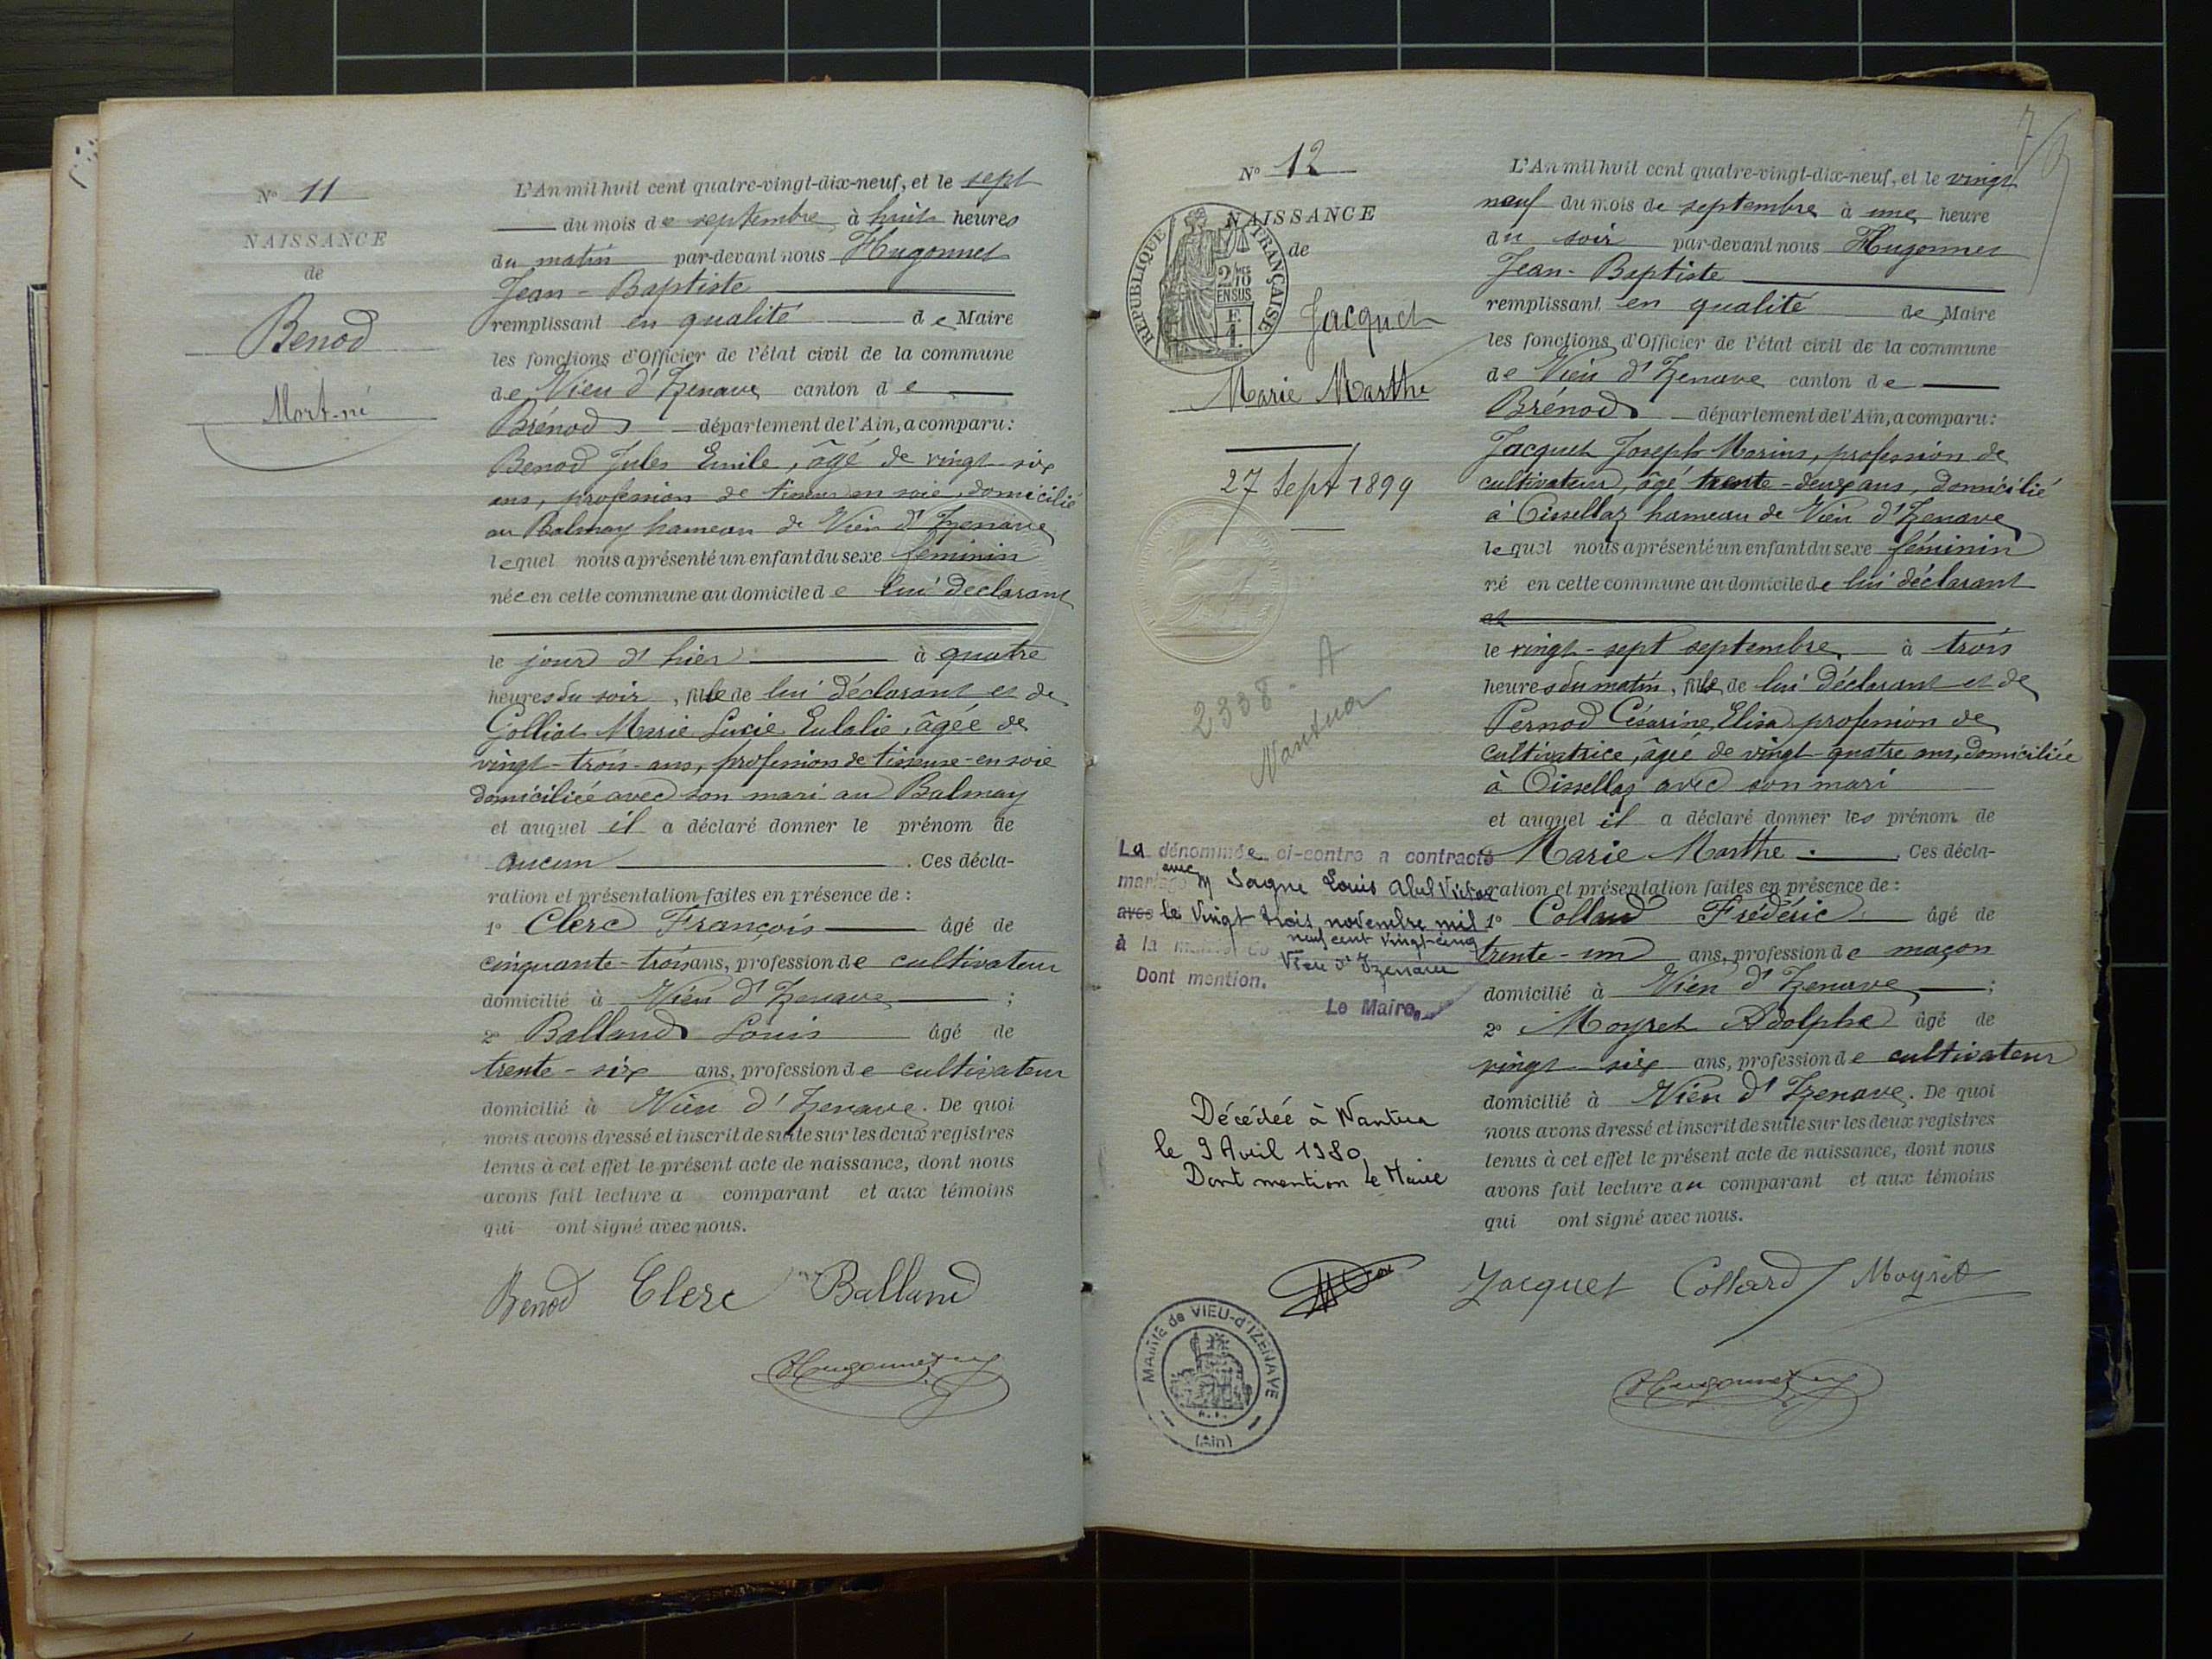 N° 11
NAISSANCE
de
Benod
Mort-né
L'An mil huit cent quatre-vingt-dix-neuf, et le sept
du mois de septembre à huit heures
du matin par-devant nous Hugonnet
Jean-Baptiste
remplissant en qualité de Maire
les fonctions d'Officier de l'état civil de la commune
de Vieu d'Izenave canton de
Brénod département de l'Ain, a comparu :
Benod Jules Emile, âgé de vingt-six
ans, profession de tisseur en soie, domicilié
au Balmay hameau de Vieu d'Izenave
lequel nous a présenté un enfant du sexe féminin
née en cette commune au domicile de lui déclarant
le jour d'hier à quatre
heures du soir, fille de lui déclarant et de
Golliot Marie Lucie Eulalie, âgée de
vingt-trois ans, profession de tisseuse-en soie
domiciliée avec son mari au Balmay
et auquel il a déclaré donner le prénom de
aucun . Ces décla-
ration et présentation faites en présence de :
1° Clerc François âgé de
cinquante-trois ans, profession de cultivateur
domicilié à Vieu d'Izenave ;
2° Balland Louis âgé de
trente-six ans, profession de cultivateur
domicilié à Vieu d'Izenave. De quoi
nous avons dressé et inscrit de suite sur les deux registres
tenus à cet effet le présent acte de naissance, dont nous
avons fait lecture a comparant et aux témoins
qui ont signé avec nous.
Benod Clerc Balland
Hugonnet
N° 12
NAISSANCE
de
RÉPUBLIQUE FRANÇAISE
2/10
EN SUS
Jacquet
Marie Marthe
27 Sept 1899
2338 - A
Nantua
La dénommée ci-contre a contracté
mariage avec M Sagne Louis Abel Victor
avec le vingt trois novembre mil
neuf cent vingt-cinq
à la mairie de Vieu d'Izenave
Dont mention.
Le Maire,
Décédée à Nantua
le 9 Avril 1980
Dont mention le Maire
MAIRIE de VIEU-d'IZENAVE
(Ain)
7
L'An mil huit cent quatre-vingt-dix-neuf, et le vingt
neuf du mois de septembre à une heure
du soir par-devant nous Hugonnet
Jean-Baptiste
remplissant en qualité de Maire
les fonctions d'Officier de l'état civil de la commune
de Vieu d'Izenave canton de
Brénod département de l'Ain, a comparu :
Jacquet Joseph Marius, profession de
cultivateur, âgé trente-deux ans, domicilié
à Oissellaz hameau de Vieu d'Izenave
lequel nous a présenté un enfant du sexe féminin
né en cette commune au domicile de lui déclarant
et
le vingt-sept septembre à trois
heures du matin, fille de lui déclarant et de
Pernod Césarine Elisa profession de
cultivatrice, âgée de vingt-quatre ans, domiciliée
à Oissellaz avec son mari
et auquel il a déclaré donner les prénom de
Marie Marthe . Ces décla-
ration et présentation faites en présence de :
1° Colland Frédéric âgé de
trente-un ans, profession de maçon
domicilié à Vieu d'Izenave ;
2° Moyret Adolphe âgé de
vingt-six ans, profession de cultivateur
domicilié à Vieu d'Izenave. De quoi
nous avons dressé et inscrit de suite sur les deux registres
tenus à cet effet le présent acte de naissance, dont nous
avons fait lecture au comparant et aux témoins
qui ont signé avec nous.
Jacquet Collard Moyret
Hugonnet